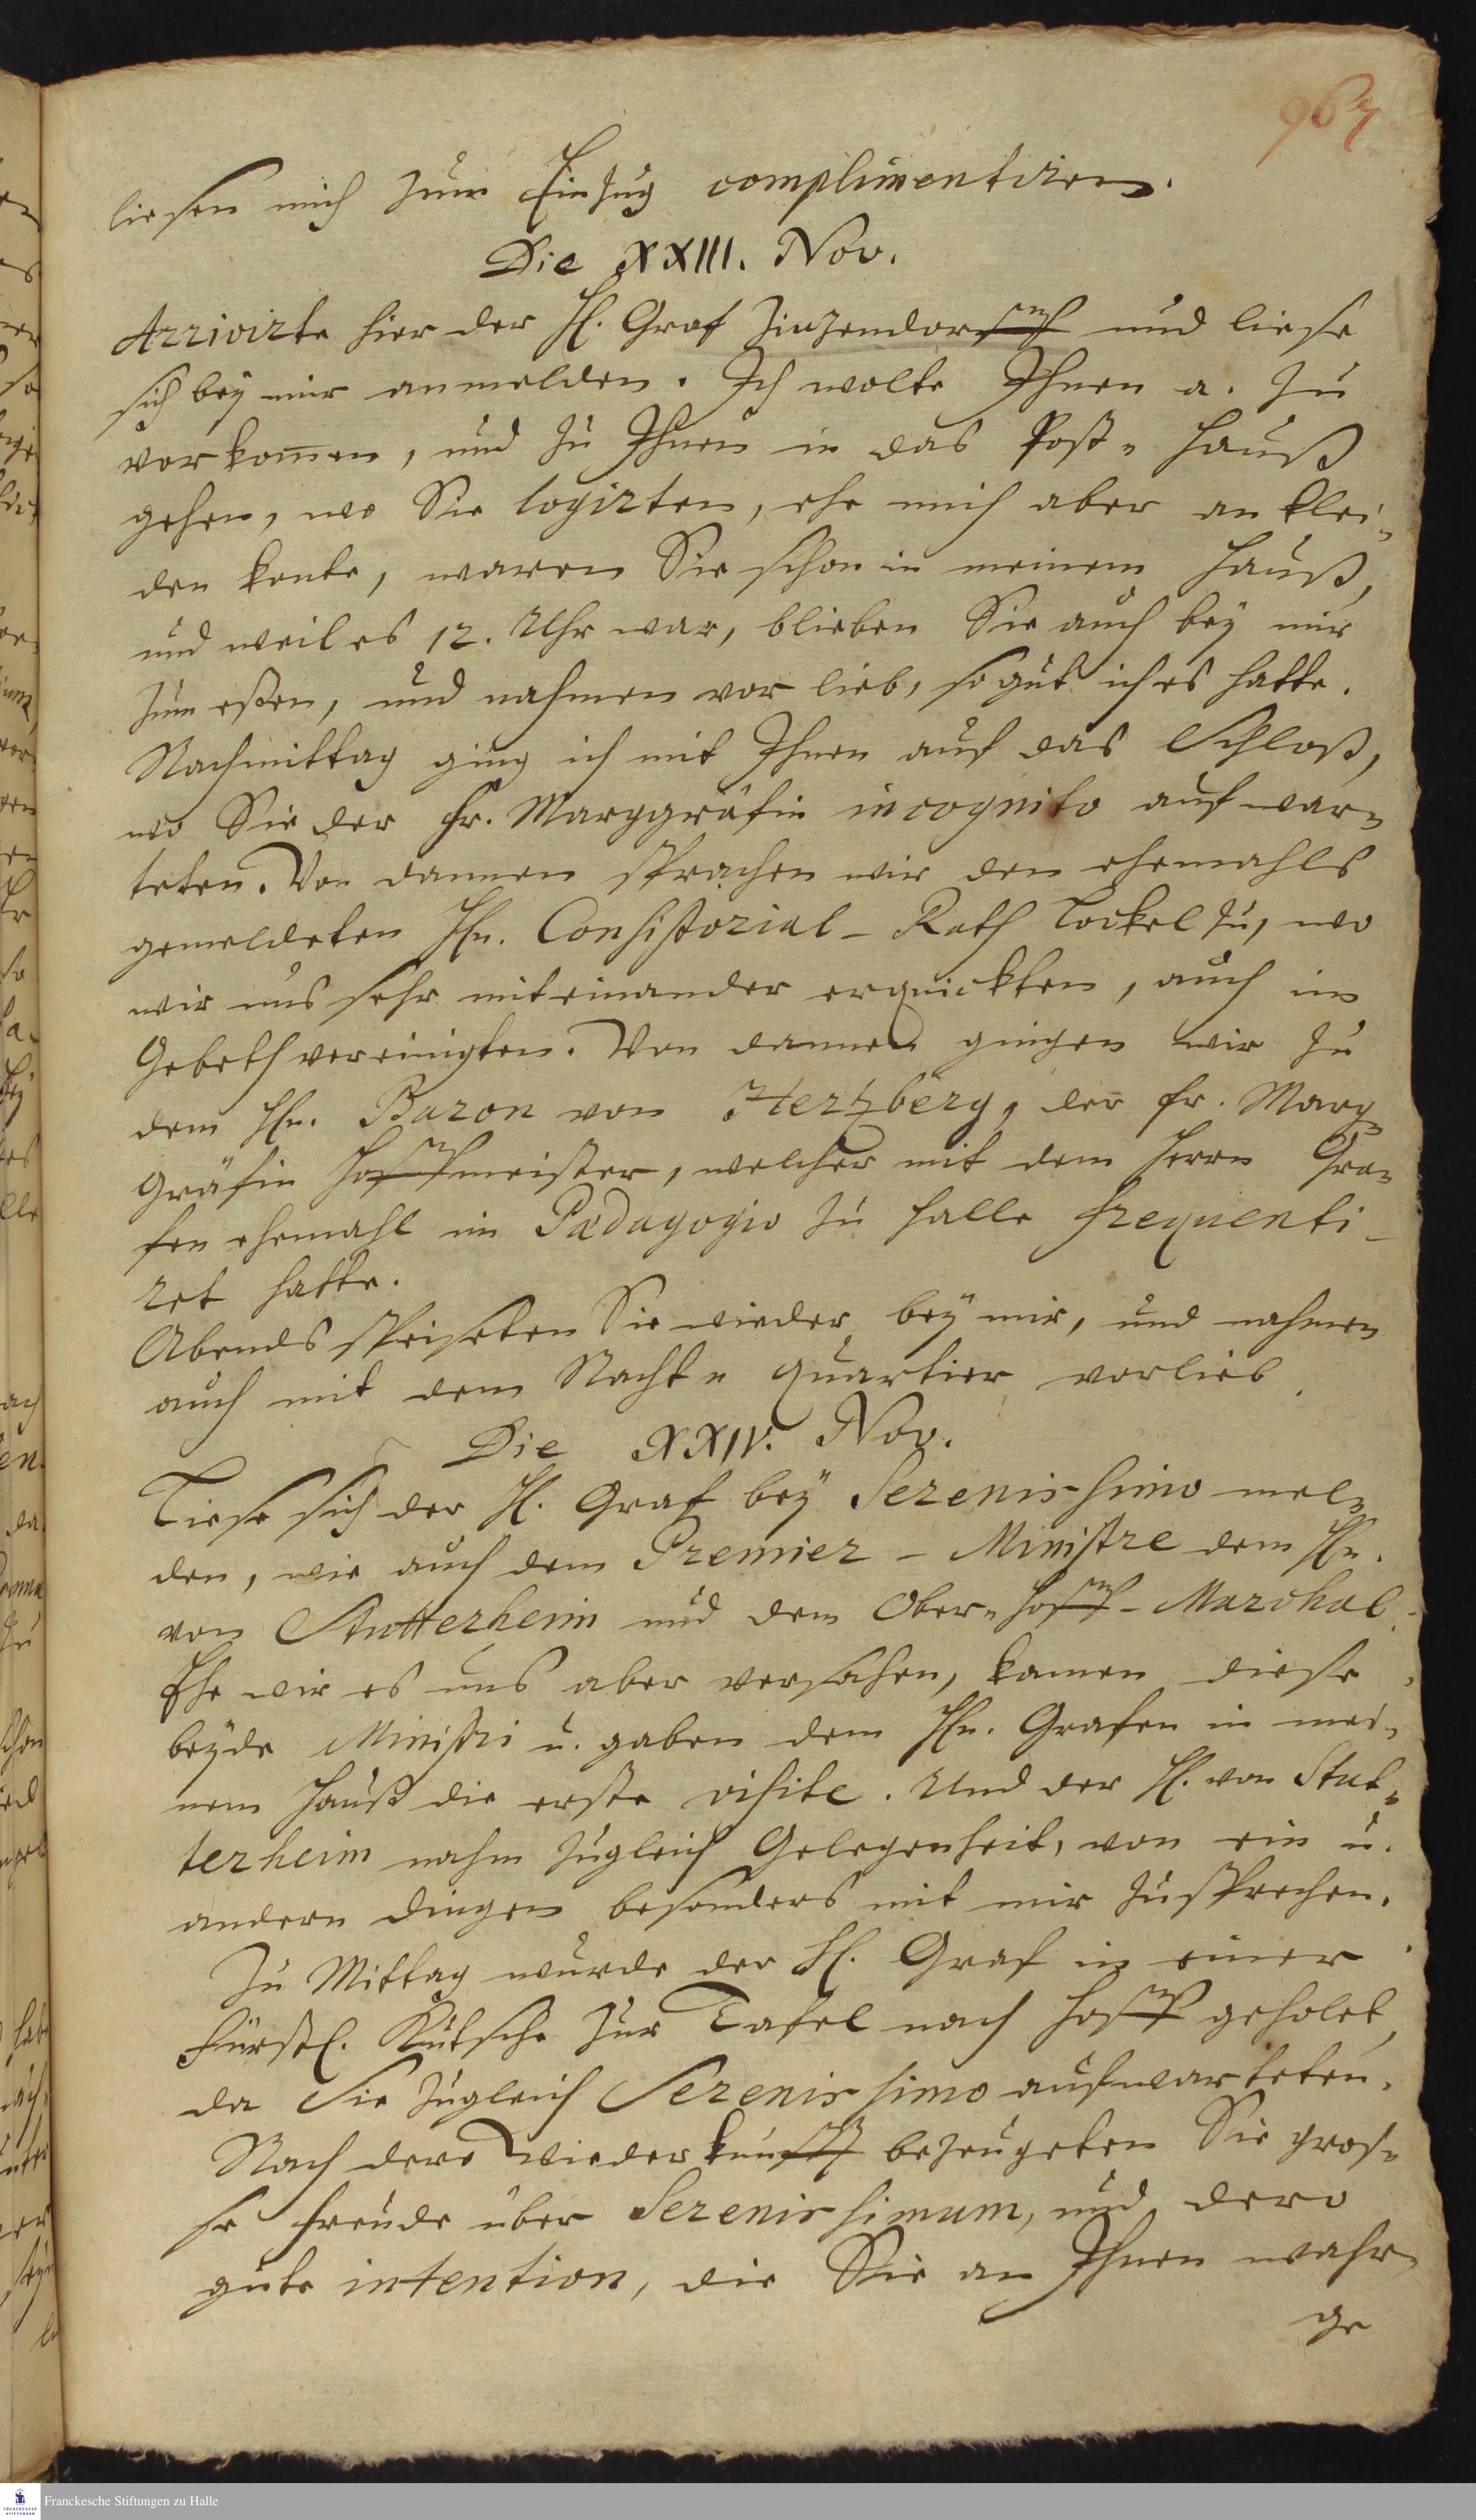 967
liesen mich zum Einzug complimentiren.
Die XXIII. Nov.
Arrivirte hier der H. Graf Zinzendorff und liese
sich bey mir anmelden. Ich wolte Ihnen a. zu
vorkom̅en, und zu Ihnen in das Post-Hauß
gehen, wo Sie logirten, ehe mich aber anklei-
den konte, waren Sie schon in meinem Hauß,
und weil es 12. Uhr war, blieben Sie auch bey mir
zum eßen, und nahmen vor lieb, so gut ich es hatte.
Nachmittag ging ich mit Ihnen auf das Schloß,
wo Sie der Fr. Marggräfin incognito aufwar-
teten. Von dannen sprachen wir den ehemahls
gemeldeten Hn. Consistorial-Rath Lockel zu, wo
wir uns sehr miteinander erquickten, auch im
Gebeth vereinigten. Von dannen gingen wir zu
dem Hn. Baron von Hertzberg, der Fr. Marg-
Gräfin Hoffmeister, welcher mit dem Herrn Gra-
fen ehemahl im Pædagogio zu Halle frequenti-
ret hatte.
Abends speiseten Sie wieder bey mir, und nahmen
auch mit dem Nacht-quartier vorlieb.
Die XXIV. Nov.
Liese sich der H. Graf bey Serenissimo mel-
den, wie auch dem Premier-Ministre dem Hn.
von Stutterheim und dem Ober-Hoff-Marchal.
Ehe wir es uns aber versahen, kamen diese
beyde Ministri u. gaben dem Hn. Grafen in mei-
nem Hauß die erste visite. Und der H. von Stut-
terheim nahm zugleich Gelegenheit, von ein u.
andern dingen besonders mit mir zusprechen.
Zu Mittag wurde der H. Graf in einer
Fürstl. Kutsche zur Tafel nach Hoff geholet,
da Sie zugleich Serenissimo aufwarteten.
Nach dero Wiederkunfft bezeugeten Sie gros-
se Freude über Serenissimum, und dero
gute intention, die Sie an Ihnen wahr-
ge
Franckesche Stiftungen zu Halle